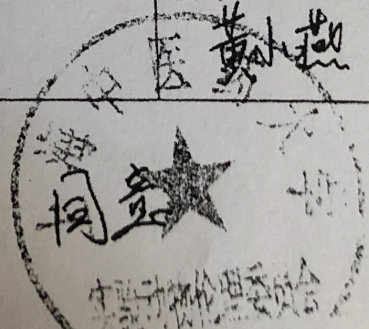 黄小燕
海中医药大学
同意
实验动物伦理委员会